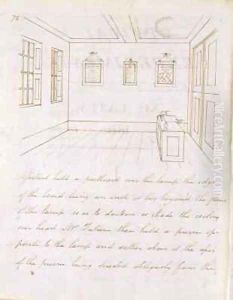 76
I first held a pasteboard over the lamp, the edge
of the board being an inch or two beyond the flame
of the lamp so as to darken or shade the ceiling
over head Mr. Talbot then held a prism op-
posite to the lamp and rather above it the apex
of the prism being directed obliquely from the